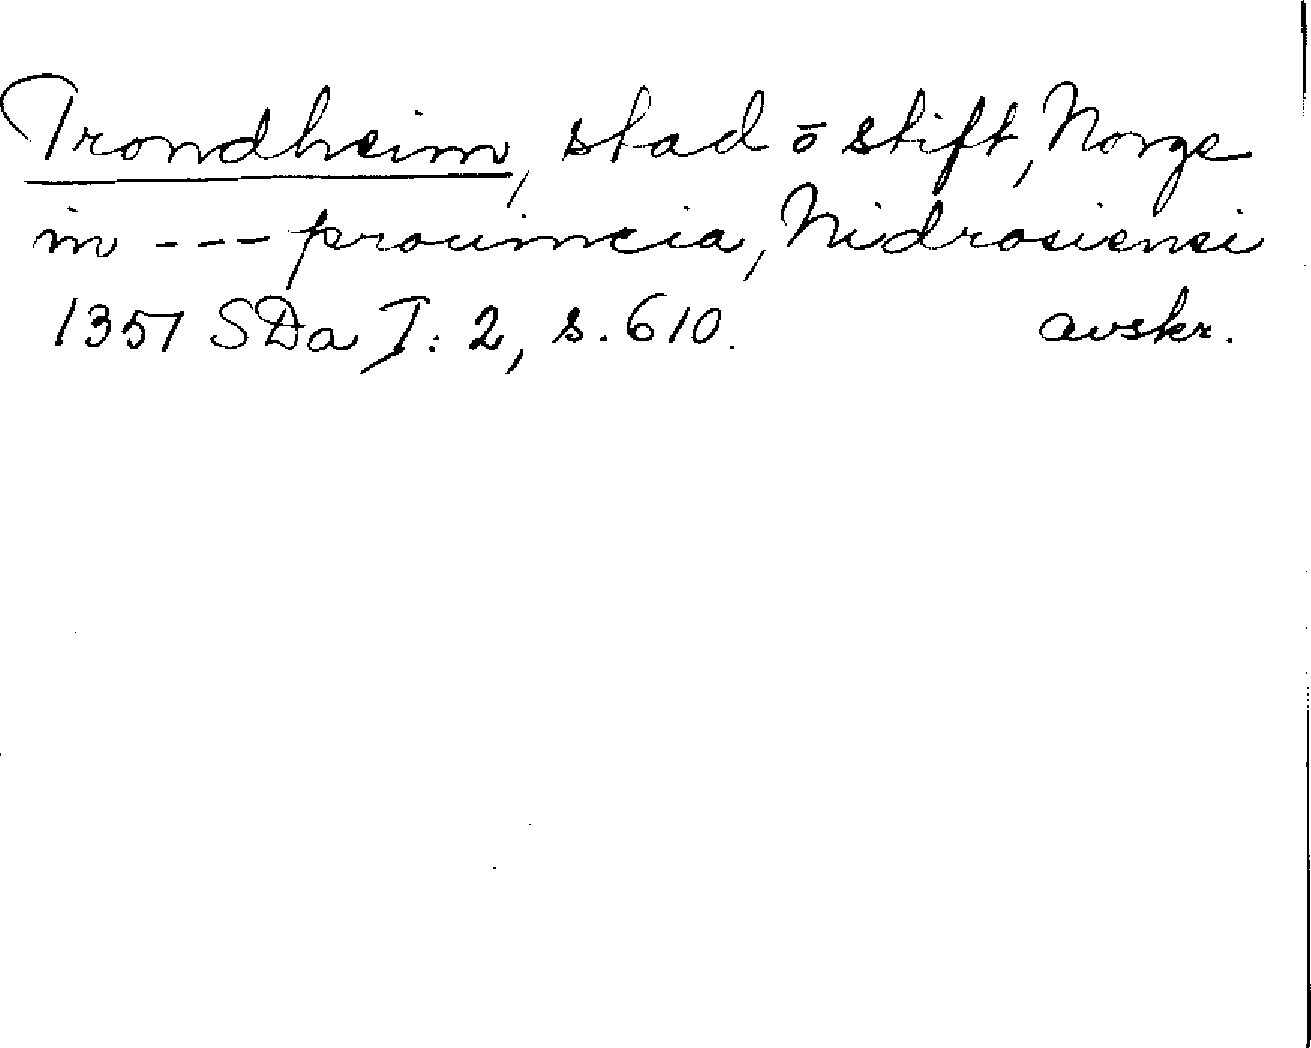 Trondheim, stad ō stift, Norge
in --- prouincia, Nidrosiensi
1357 SDa I: 2, s. 610. avskr.